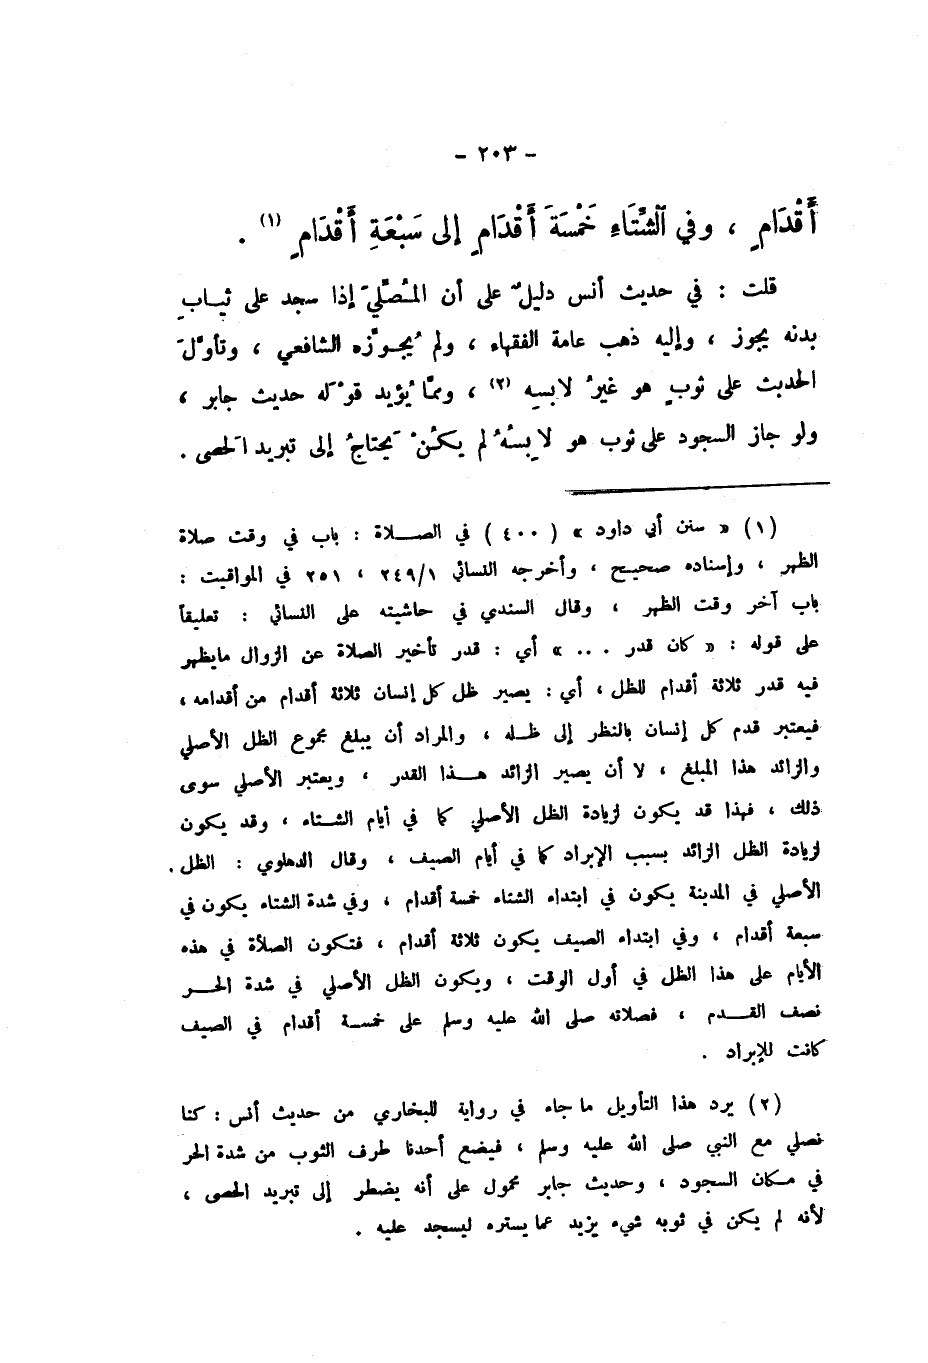 - ٢٠٣ -
أَقْدَامٍ ، وفي الشِّتَاءِ خَمْسَةَ أَقْدَامٍ إلى سَبْعَةِ أَقْدَامٍ (١) .
قلت : في حديث أنس دليلٌ على أن المُصَلِّيَ إذا سجد على ثيــابِ
بدنه يجوز ، وإليه ذهب عامة الفقهاء ، ولم يُجـوِّزه الشافعي ، وتأوَّلَ
الحديث على ثوبٍ هو غيرُ لابسِه (٢) ، وممَّا يُؤيد قوْلَه حديث جابر ،
ولو جاز السجود على ثوب هو لابِسُهُ لم يكُنْ يَحتاجُ إلى تبريد الَحصى .
(١) « سنن أبي داود » ( ٤٠٠ ) في الصـــلاة : باب في وقت صلاة
الظهر ، وإسناده صحيـح ، وأخرجه النسائي ٢٤٩/١ ، ٢٥١ في المواقيت :
باب آخر وقت الظهر ، وقال السندي في حاشيته على النسائي : تعليقاً
على قوله : « كان قدر ... » أي : قدر تأخير الصلاة عن الزوال مايظهر
فيه قدر ثلاثة أقدام للظل ، أي : يصير ظل كل إنسان ثلاثة أقدام من أقدامه ،
فيعتبر قدم كل إنسان بالنظر إلى ظــله ، والمراد أن يبلغ مجموع الظل الأصلي
والزائد هذا المبلغ ، لا أن يصير الزائد هــذا القدر ، ويعتبر الأصلي سوى
ذلك ، فهذا قد يكون لزيادة الظل الأصلي كما في أيام الشــتاء ، وقد يكون
لزيادة الظل الزائد بسبب الإبراد كما في أيام الصيف ، وقال الدهلوي : الظل .
الأصلي في المدينة يكون في ابتداء الشتاء خمسة أقدام ، وفي شدة الشتاء يكون في
سبعة أقدام ، وفي ابتداء الصيف يكون ثلاثة أقدام ، فتكون الصلاة في هذه
الأيام على هذا الظل في أول الوقت ، ويكون الظل الأصلي في شدة الحـــر
نصف القـــدم ، فصلاته صلى الله عليه وسلم على خمســة أقدام في الصيف
كانت للإبراد .
(٢) يرد هذا التأويل ما جاء في رواية للبخاري من حديث أنس : كنا
نصلي مع النبي صلى الله عليه وسلم ، فيضع أحدنا طرف الثوب من شدة الحر
في مـكان السجود ، وحديث جابر محمول على أنه يضطر إلى تبريد الحصى ،
لأنه لم يكن في ثوبه شيء يزيد عما يستره ليسجد عليه .